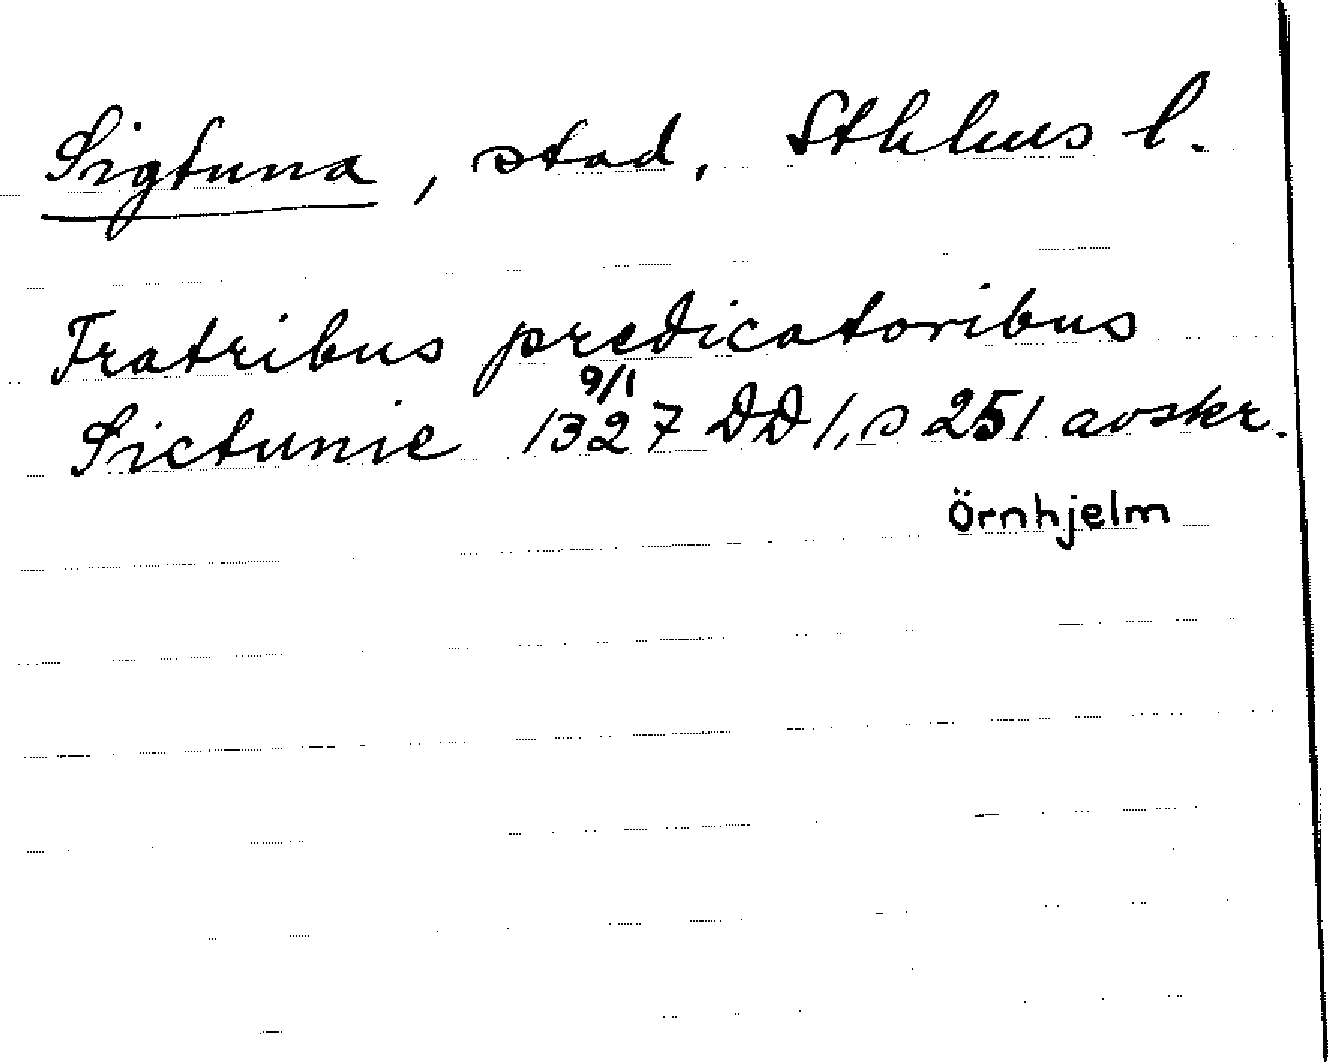 Sigtuna, stad, Sthlms l.
Fratribus predicatoribus
Sictunie 9/1 1327 DD 1, s 251 avskr.
Örnhjelm